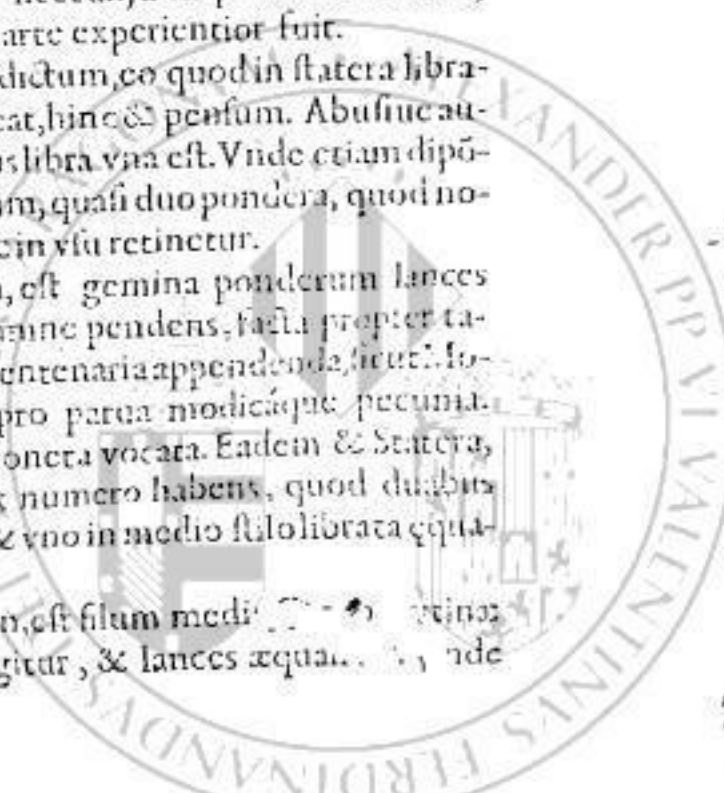 arte experientior fuit.
dictum, eo quod in statera libra-
eat, hinc & pensum. Abusiue au-
s libra vna est. Vnde etiam dipõ-
m, quasi duo pondera, quod no-
c in vsu retinetur.
, est gemina ponderum lances
mine pendens, facta propter ta-
entenaria appendenda, sicut Mo-
pro parua modicáque pecunia.
oneta vocata. Eadem & Statera,
x numero habens, quod duabus
& vno in medio stilo librata ęqua-
n, est filum medi
gitur, & lances æqua
ALEXANDER PP VI VALENTINVS FERDINANDVS